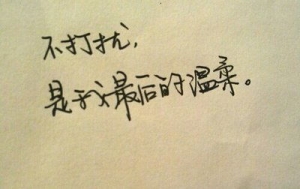 不打扰，
是我最后的温柔。